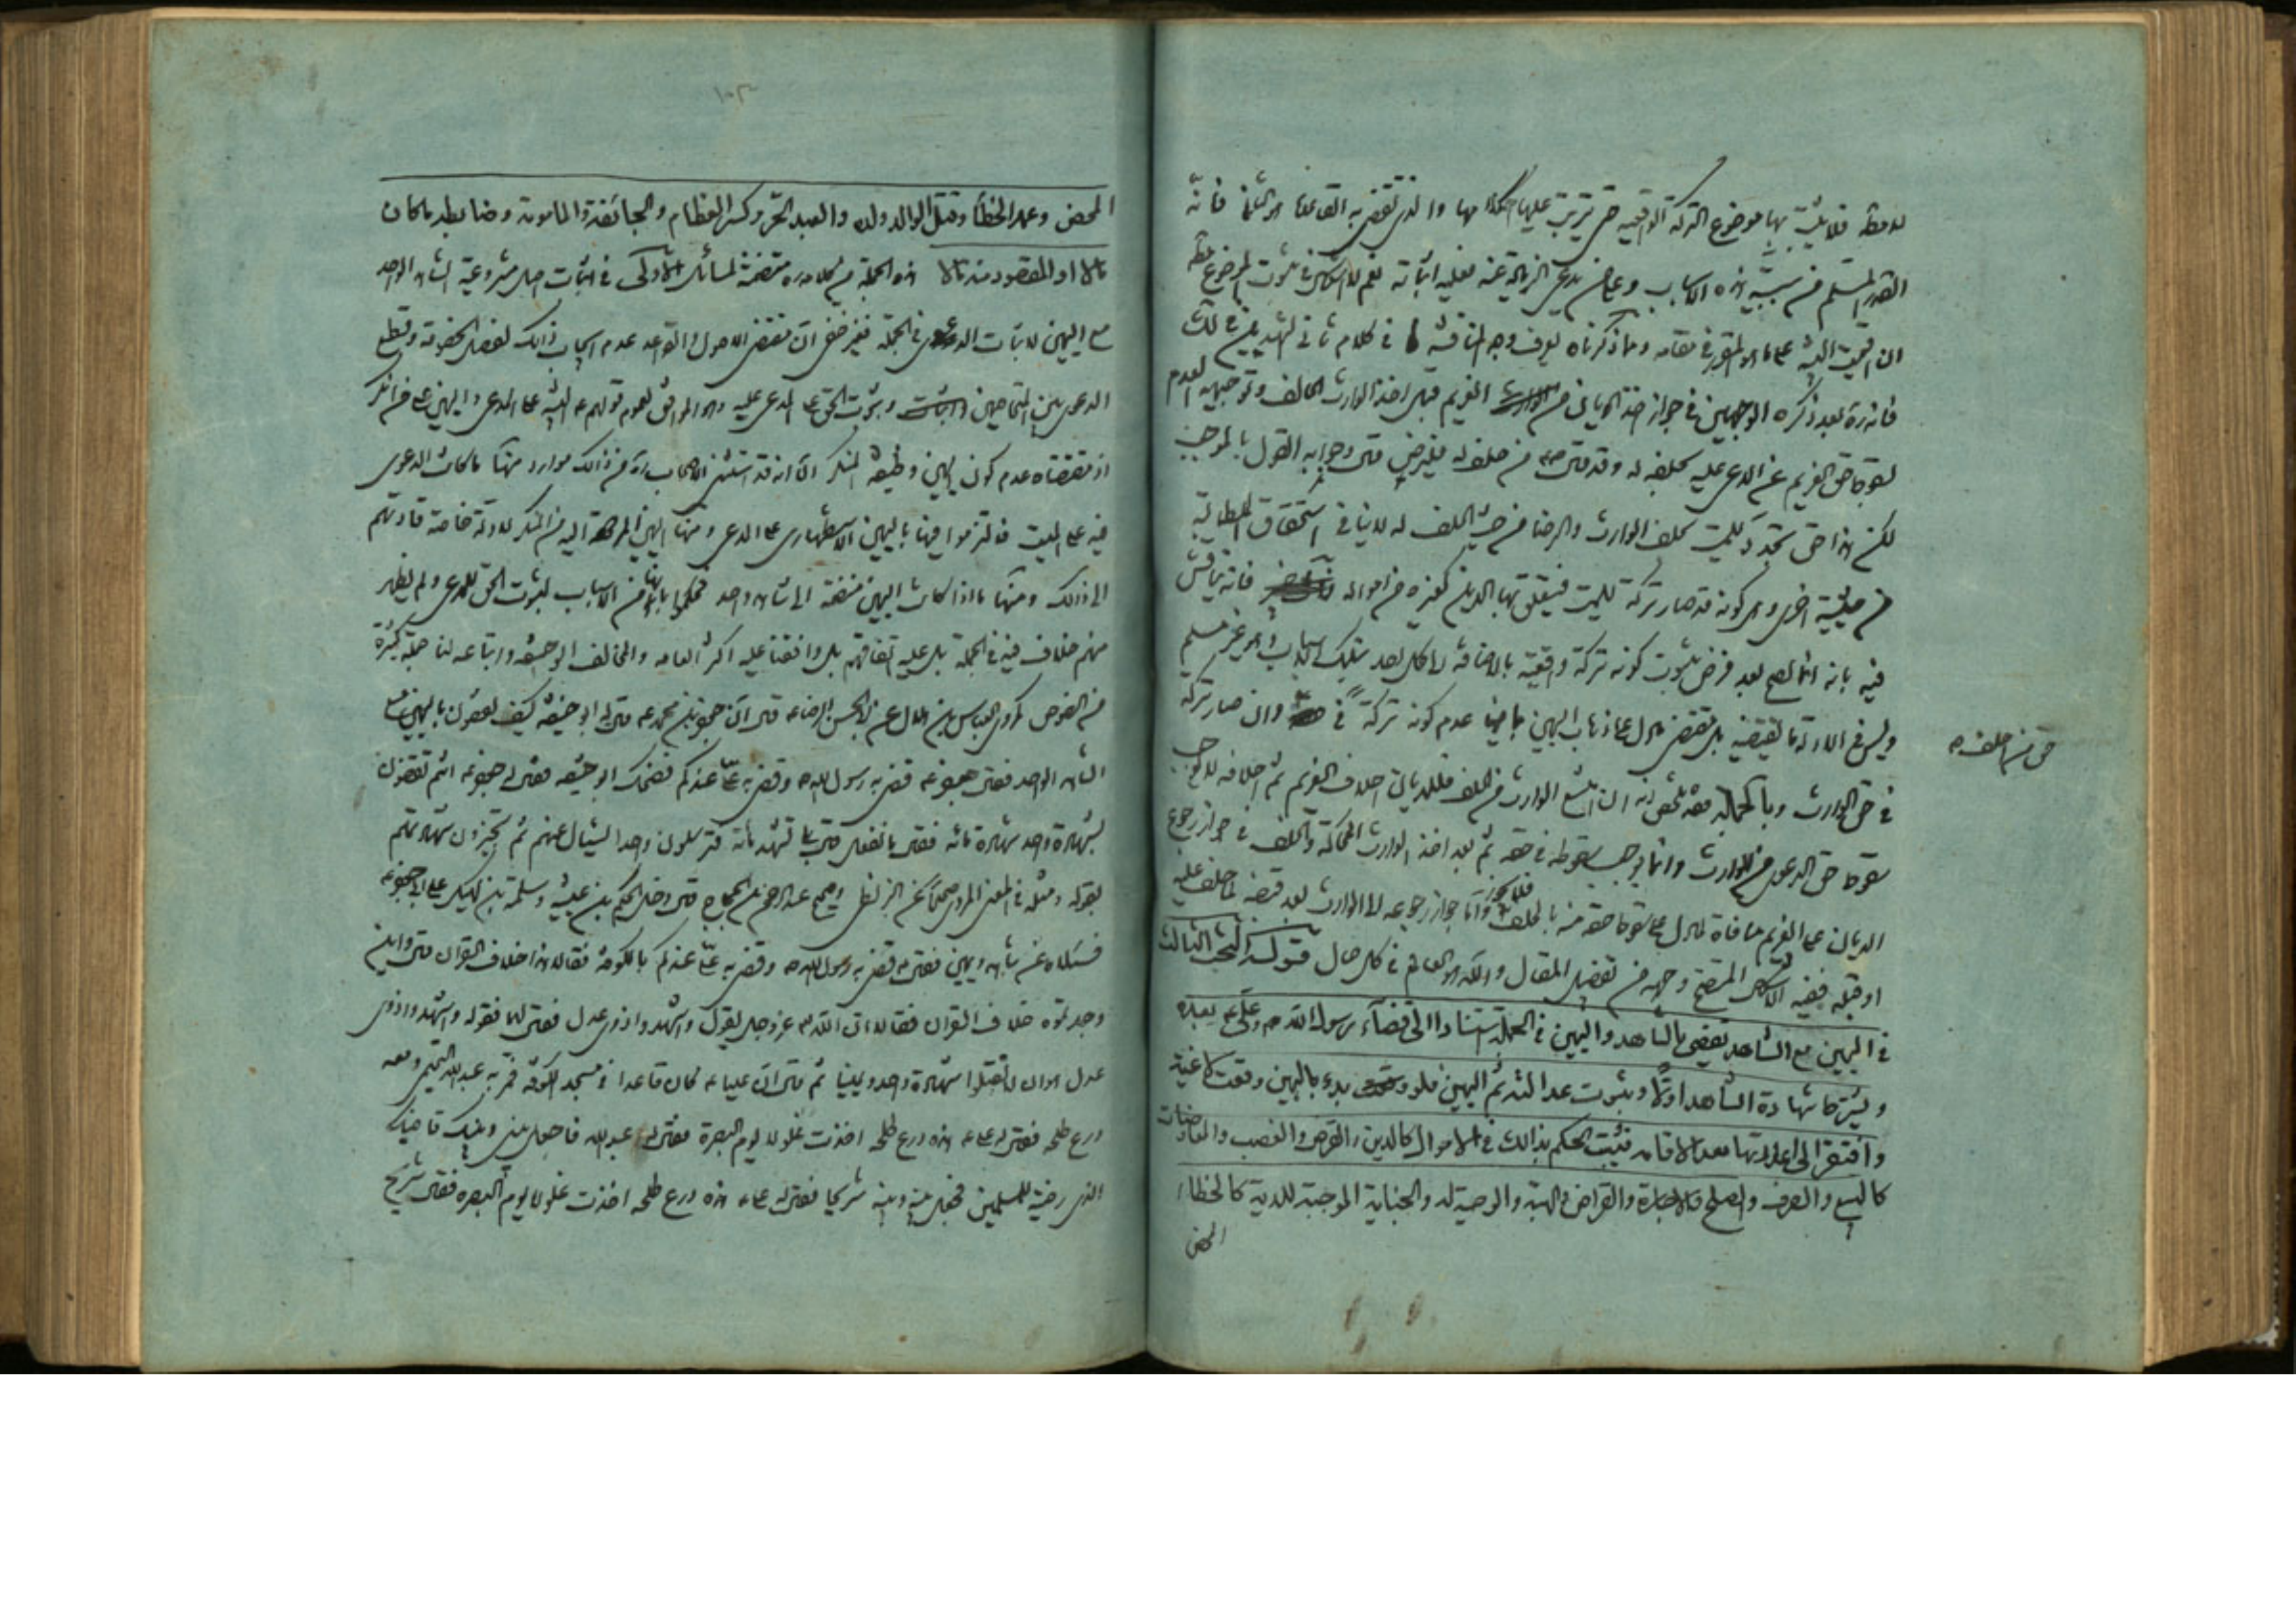 فلا يثبت بها موضوع التركة الواقعية حتى يترتب عليها احكامها والذى تقتضيه القاعدة هو الثانى فانه
القدر المسلم من سببية هذه الاسباب وعلى من يدعى الزيادة عنه فعليه اثباته نعم لا اشكال فى ثبوت الموضوع
ان اقيمت البينة على ما هو المقرر فى مقامه ومما ذكرناه يعرف وجه المناقشة فى كلام ثانى الشهيدين فى لك
فانه ره بعد ذكره الوجهين فى جواز اخذ الديان من الغريم قبل اخذ الوارث الحالف وتوجيهه العدم
بسقوط حق الغريم عن المدعى عليه بحلفه له وقد
لكن هذا حق تجدد للميت بحلف الوارث والرضا من حيث الحلف له لا ينافى استحقاق المطالبة
من حيثية اخرى وهى كونه قد صار تركة للميت فيتعلق بها الدين كغيره من امواله فانه يناقش
فيه بانه انما يصح بعد فرض ثبوت كونه تركة واقعية بالاضافة الى كل احد بتلك الاسباب وهو غير مسلم
وليس فى الادلة ما يقتضيه بل مقتضى ما دل على ذهاب اليمين بما فيها عدم كونه تركة فى وان صار تركة
حق من احلف ه
فى حق الوارث وبالجملة فقد تلخص انه ان امتنع الوارث من الحلف فللديان احلاف الغريم ثم احلافه لا يوجب
سقوط حق الدعوى من الوارث وانما يوجب سقوطه فى حقه ثم بعد اخذ الوارث المحاكمة والحلف فى جواز رجوع
الديان على الغريم منافاة لما دل على سقوط حقه منه بالحلف فلا يجوز واما جواز رجوعه الى الوارث بعد قبضه لما حلف عليه
او قبله ففيه الاشكال المتضح وجهه من تفصيل المقال والله هو العالم فى كل حال قوله البحث الثالث
فى اليمين مع الشاهد يقضى بالشاهد واليمين فى الجملة استنادا الى قضاء رسول الله ص وعلى ع بعده
ويشترط شهادة الشاهد اولا وثبوت عدالته ثم اليمين فلو بدء باليمين وقعت لاغية
وافتقر الى اعادتها بعد الاقامة ويثبت الحكم بذالك فى الاموال كالدين والقرض والغصب والمعاوضات
كالبيع والصرف والصلح والاجارة والقراض والهبة والوصية له والجناية الموجبة للدية كالخطاء
المحض
المحض وعمد الخطأ وقتل الوالد ولده والعبد الحر وكسر العظام والجائفة والمامومة وضابطه ما كان
مالا او المقصود منه مالا هذه الجملة من كلامه ره متضمنة لمسائل الاولى فى اثبات اصل مشروعية الشاهد الواحد
مع اليمين لاثبات الدعوى فى الجملة فغير خفى ان مقتضى الاصول والقواعد عدم ايجاب ذالك لفصل الخصومة وقطع
الدعوى بين المتخاصمين وثبوت الحق على المدعى عليه وهو الموافق لعموم قولهم ع البينة على المدعى واليمين على من انكر
اذ مقتضاه عدم كون اليمين وظيفة لغير المنكر الا انه قد استثنى الاصحاب ره من ذالك موارد منها ما كانت الدعوى
فيه على الميت فالتزموا فيها باليمين الاستظهارى على المدعى ومنها اليمين المردودة اليه من المنكر لادلة خاصة قادتهم
الى ذالك ومنها ما اذا كانت اليمين منضمة الى شاهد واحد فحكموا بانها من الاسباب لثبوت الحق للمدعى ولم يظهر
منهم خلاف فيه فى الجملة بل عليه اتفاقهم بل وافقنا عليه اكثر العامه والمخالف ابو حنيفة واتباعه لنا جملة كثيرة
من النصوص كمروى العباس بن هلال عن ابى الحسن الرضا ع قال ان جعفر بن محمد ع قال له ابو حنيفة كيف تقضون باليمين مع
الشاهد الواحد فقال جعفر ع قضى به رسول الله ص وقضى به على ع عندكم فضحك ابو حنيفة فقال له جعفر ع انتم تقضون
بشهادة واحد شهادة مائة فقال ما نفعل قال بلى تشهد مائة فترسلون واحدا يسئل عنهم ثم تجيزون شهادتهم
بقوله ومثله فى المعنى المروى صحيحا عن عبد الرحمن بن الحجاج قال دخل الحكم بن عتيبة وسلمة بن كهيل على ابى جعفر ع
فسئلاه عن شاهد ويمين فقال قضى به رسول الله ص وقضى به على ع عندكم بالكوفة فقالا هذا خلاف القران قال واين
وجدتموه خلاف القران فقالا ان الله عز وجل يقول واشهدوا ذوى عدل فقال لهما فقوله واشهدوا ذوى
عدل هو ان لا تقبلوا شهادة واحد ويمينا ثم قال ان عليا ع كان قاعدا فى مسجد الكوفة فمر به عبد الله التميمى ومعه
درع طلحه فقال له على ع هذه درع طلحه اخذت غلولا يوم البصرة فقال له عبد الله فاجعل بينى وبينك قاضيك
الذى رضيته للمسلمين فجعل بينه وبينه شريحا فقال له على ع هذه درع طلحه اخذت غلولا يوم البصره فقال شريح